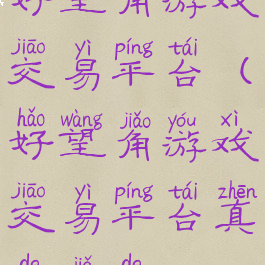 好望角游戏
jiāo yì píng tái
交易平台（
hǎo wàng jiǎo yóu xì
好望角游戏
jiāo yì píng tái zhēn
交易平台真
de jiǎ de